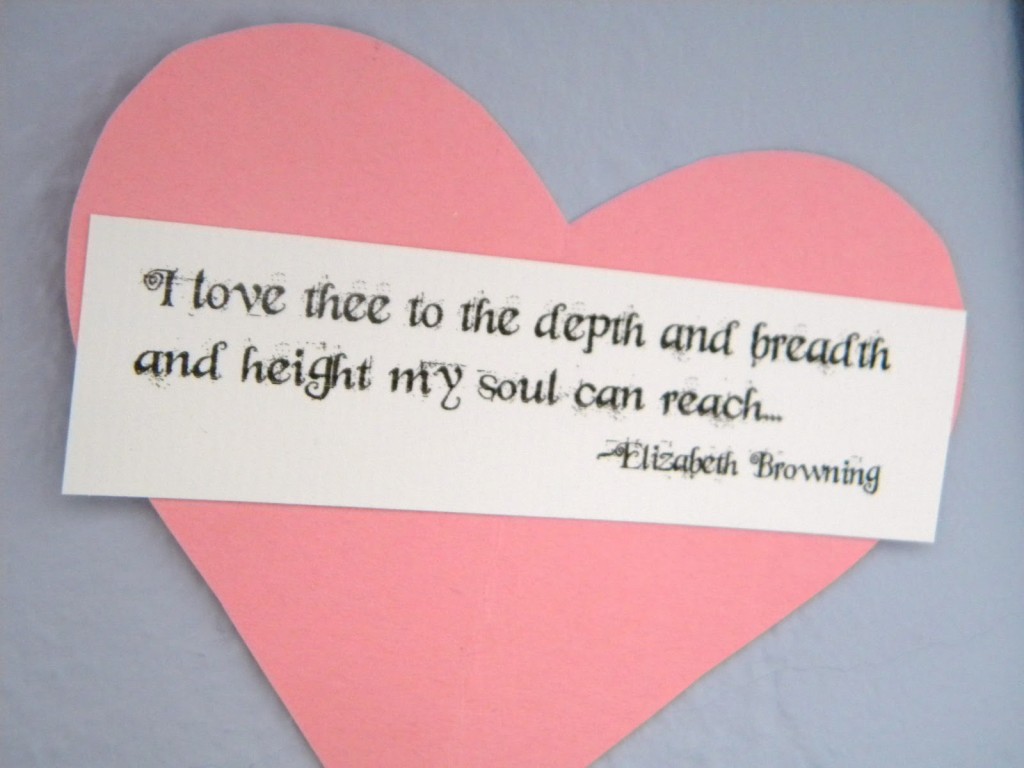 I love thee to the depth and breadth
and height my soul can reach...
~Elizabeth Browning